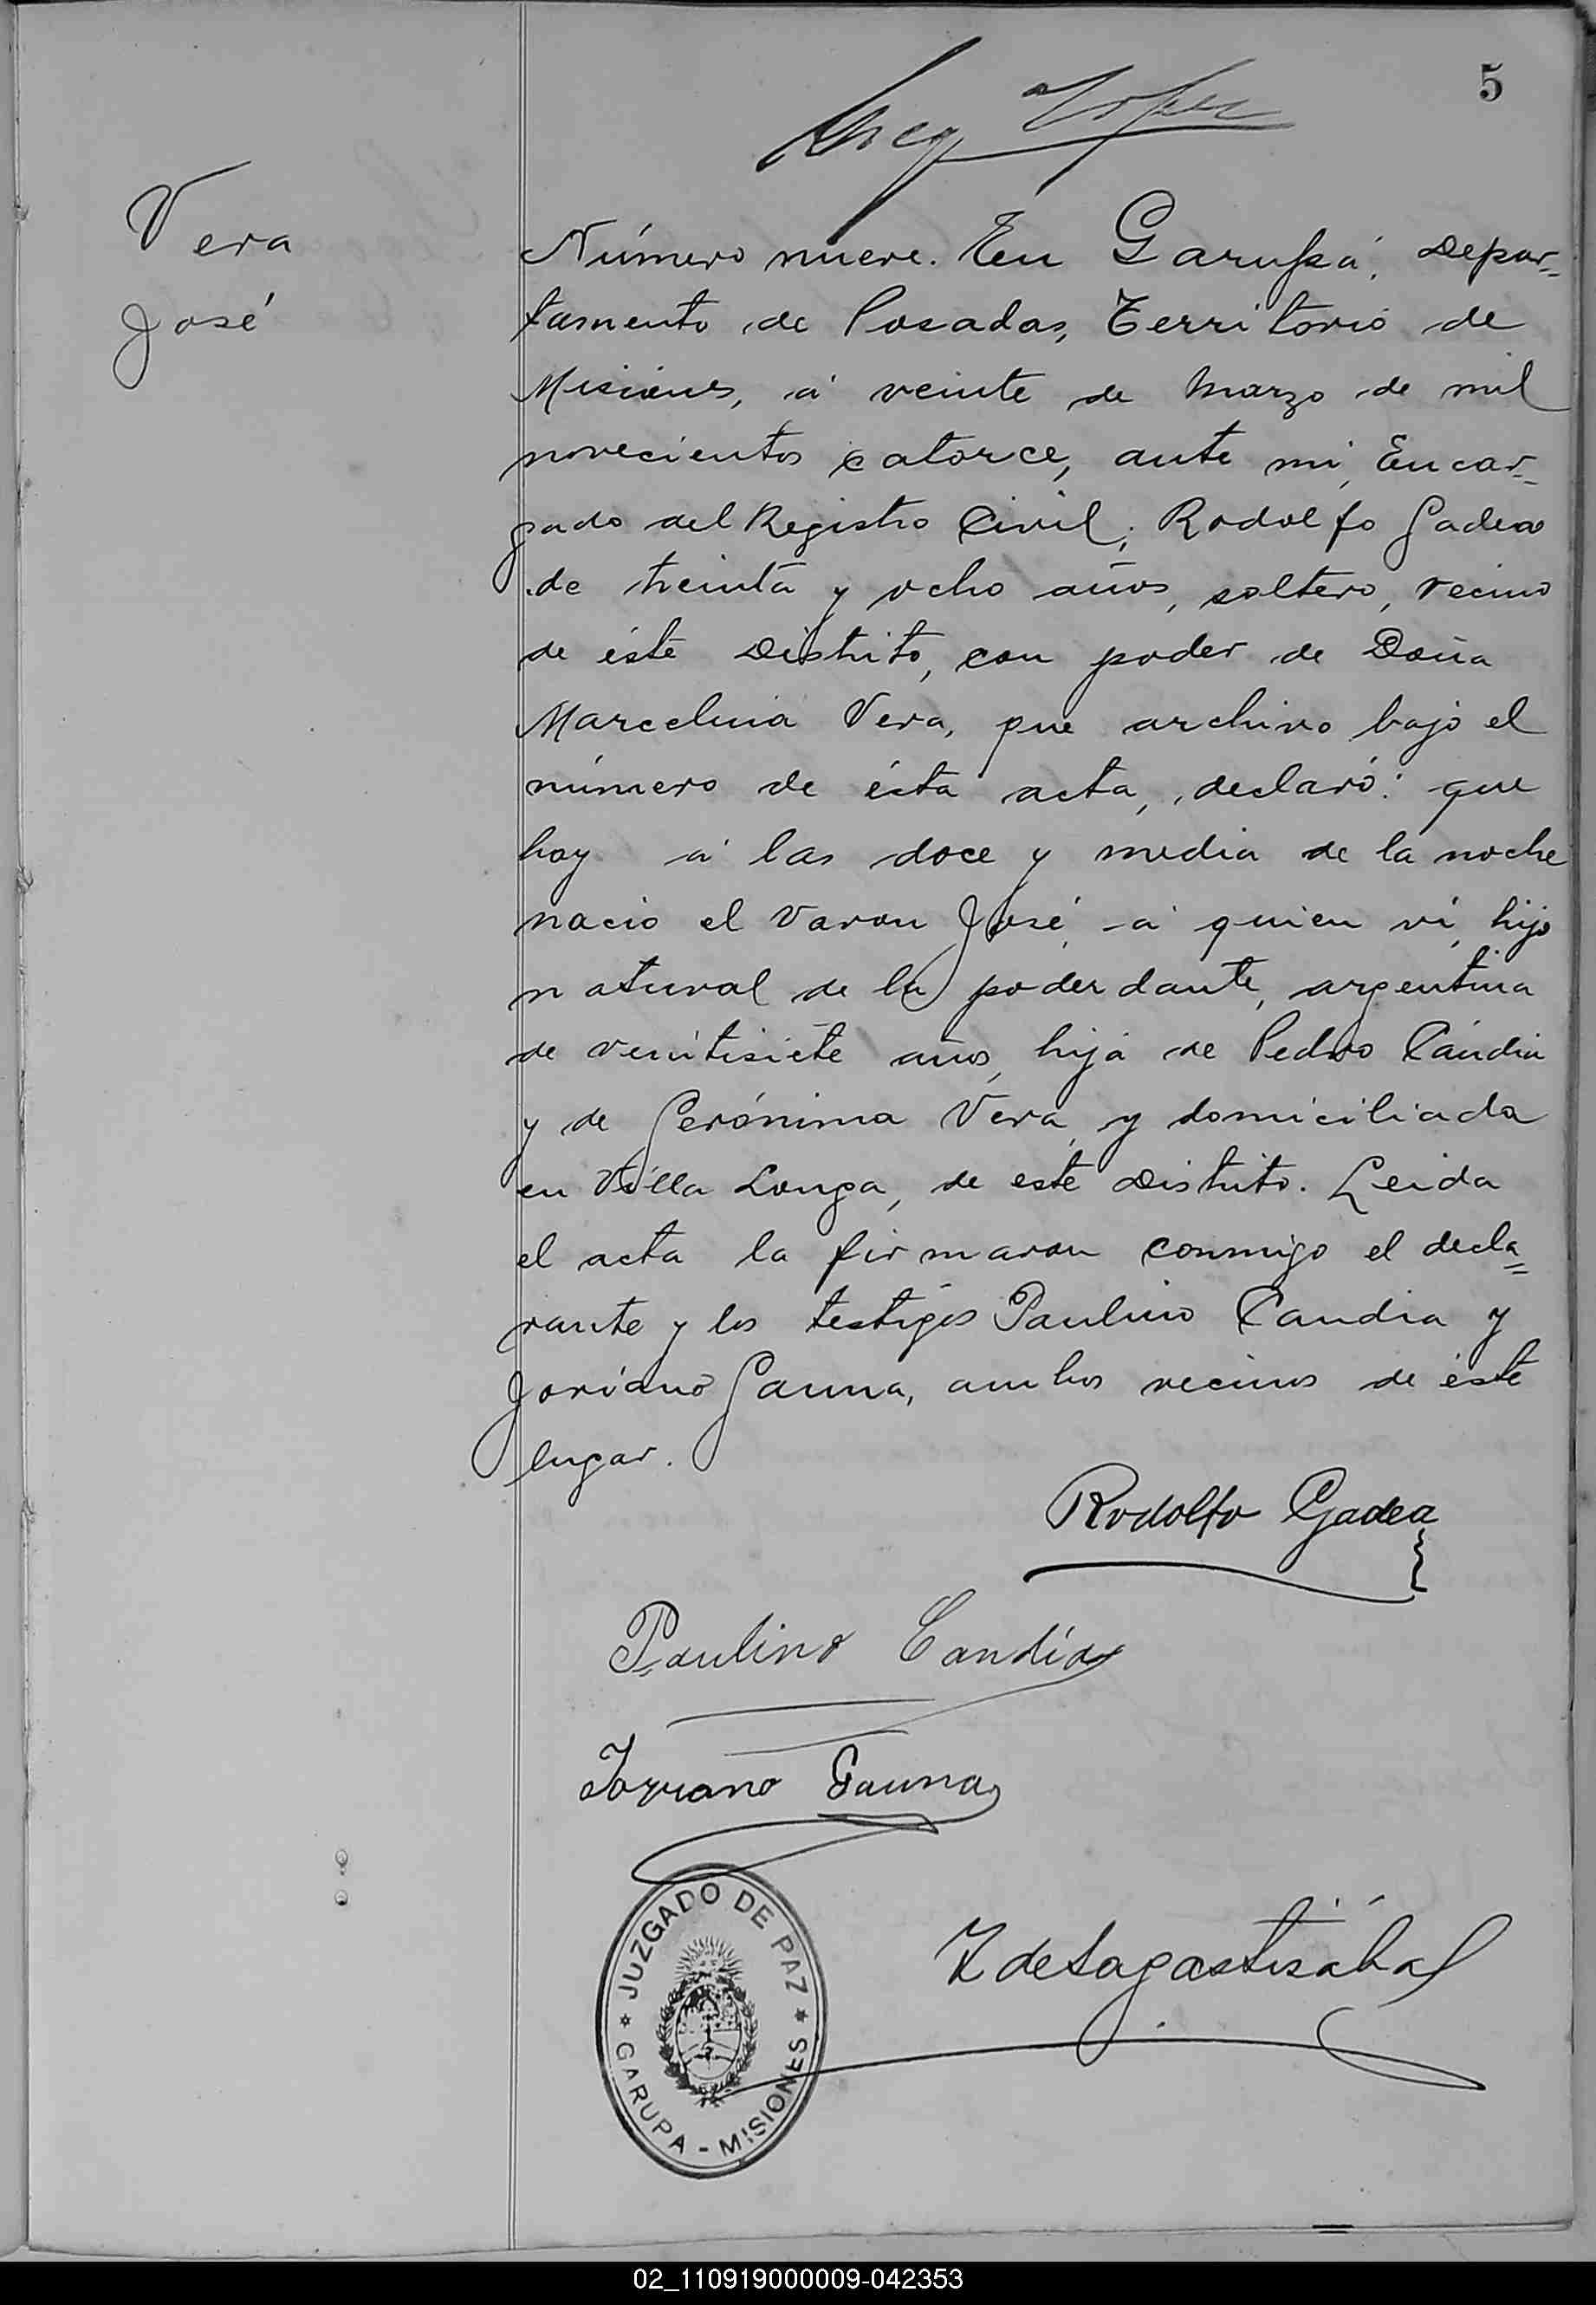 5
Vera
José
Número nueve. En Garupá, Depar=
tamento de Posadas, Territorio de
Misiones, á veinte de Marzo de mil
novecientos catorce, ante mi, Encar=
gado del Registro Civil; Rodolfo Gadea
de treinta y ocho años, soltero, vecino
de éste Distrito, con poder de Doña
Marcelina Vera, que archivo bajo el
número de ésta acta, declaró: que
hoy á las doce y media de la noche
nació el varon José, á quien ví, hijo
natural de la poderdante, argentina
de veintisiete años, hija de Pedro Candia
y de Gerónima Vera, y domiciliada
en Villa Longa, de este Distrito. Leida
el acta la firmaron conmigo el decla=
rante y los testigos Paulino Candia y
Joviano Gauna, ambos vecinos de éste
lugar.
Rodolfo Gadea
Paulino Candia
Gauna
JUZGADO DE PAZ
GARUPA - MISIONES
de Sagastizábal
02_110919000009-042353